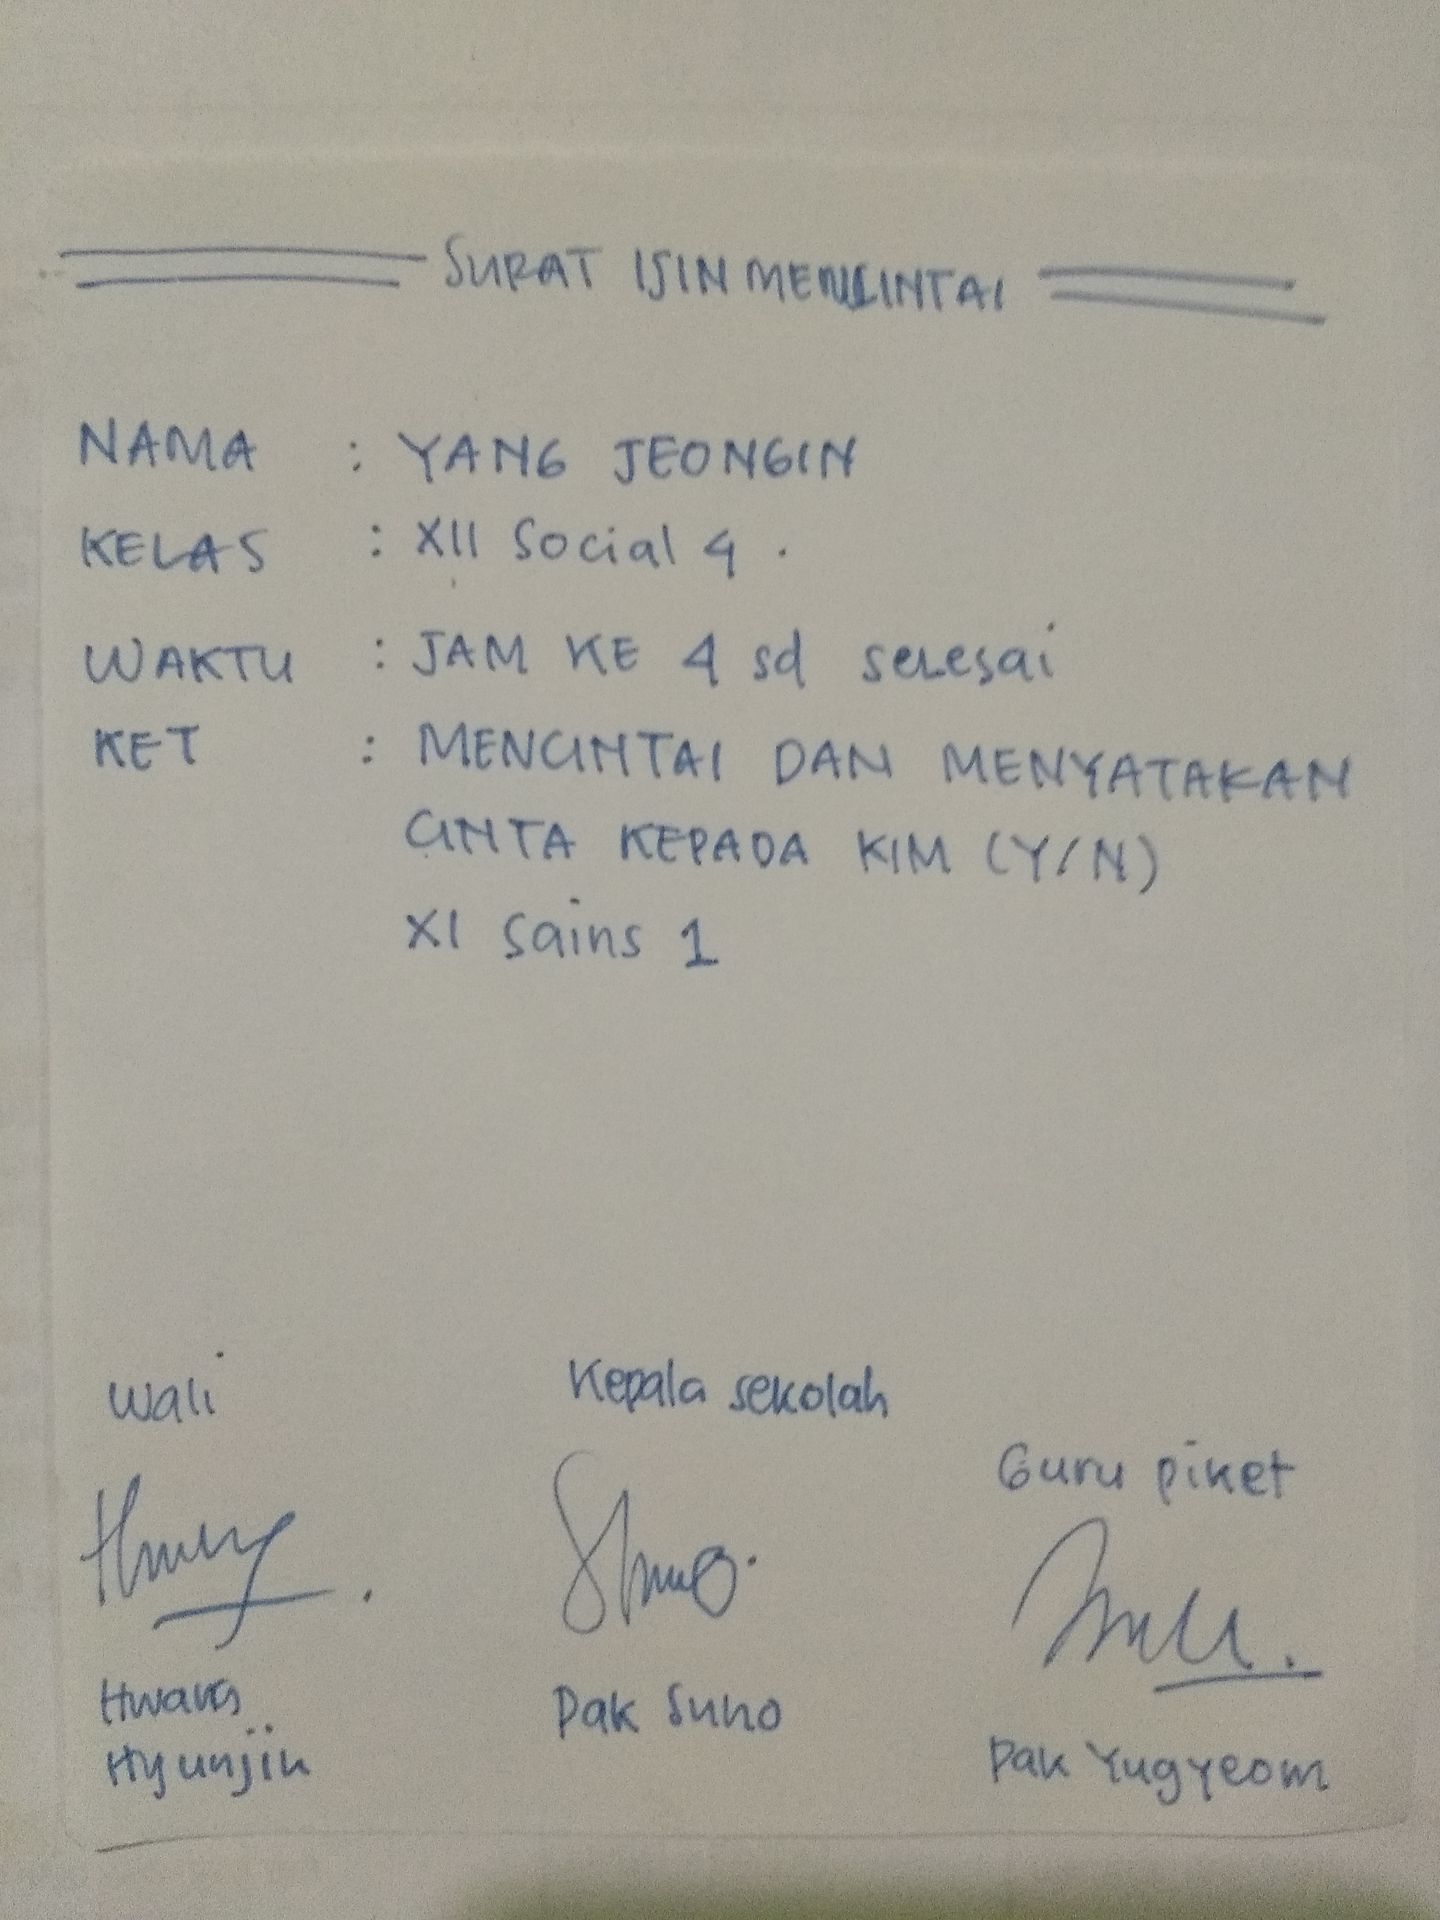 SURAT IJIN MENCINTAI
NAMA : YANG JEONGIN
KELAS : XII Social 4 .
WAKTU : JAM KE 4 sd selesai
KET : MENCINTAI DAN MENYATAKAN
CINTA KEPADA KIM (Y/N)
XI Sains 1
Wali
Kepala sekolah
Guru piket
Hwang
Hyunjin
Pak Suho
Pak Yugyeom